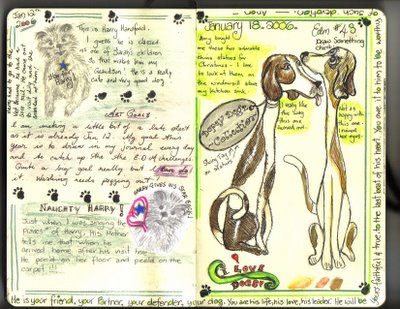 Jan 12
2006
This is Harry Handford.
I guess he is classed
as one of Sarah's children
So that makes him my
Grandson! He is a really
cute and very good dog.
Art Goals
making a little bit of a late start
as it is already Jan 12. My goal this
year is to draw in my journal every day
and to catch up the E.D.M challenges.
Quite a big goal really but I can do
it. Washing needs pegging out
Naughty Harry!
Harry gives his star back!
Just when I was singing the
praises of Harry. His Mother
tells me that when he
arrived home after his visit here
He pee'd on her floor and pea'd on
the carpet!!!
January 18. 2006.
EDM #43
Draw Something
Amy bought
me these two adorable
statues for
Christmas. I love
to look at them, on
the windowsill above
my kitchen sink.
Dopey Dogs
Collection
I really like
the furry
one
turned out.
Not so
happy with
this one
I ruined
her eyes.
I LOVE
DOGGY
He is your friend, your partner, your defender, your dog. You are his life, his love, his leader. He will be
yours faithful & true to the last beat of his heart. You owe it to him to be worthy
of such devotion.